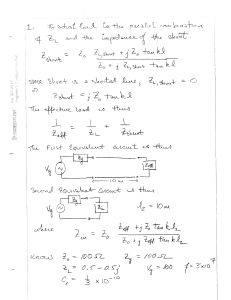 1. The total load is the parallel combination
of Z_L and the impedance of the short
Z_short = Z_0 (Z_L,short + j Z_0 tan kl) / (Z_0 + j Z_L,short tan kl)
since short is a shorted line, Z_L,short = 0
Z_short = j Z_0 tan kl
The effective load is thus
1/Z_eff = 1/Z_L + 1/Z_short
The First Equivalent circuit is thus
Z_g
V_g
Z_eff
10 m
Second Equivalent circuit is thus
Z_g
V_g
l_2 = 10 m
where
Z_in = Z_0 (Z_eff + j Z_0 tan k l_2) / (Z_0 + j Z_eff tan k l_2)
Z_0 = 100 Ω Z_g = 100 Ω
Z_L = 0.5 - 0.5j V_g = 100 f = 3×10^7